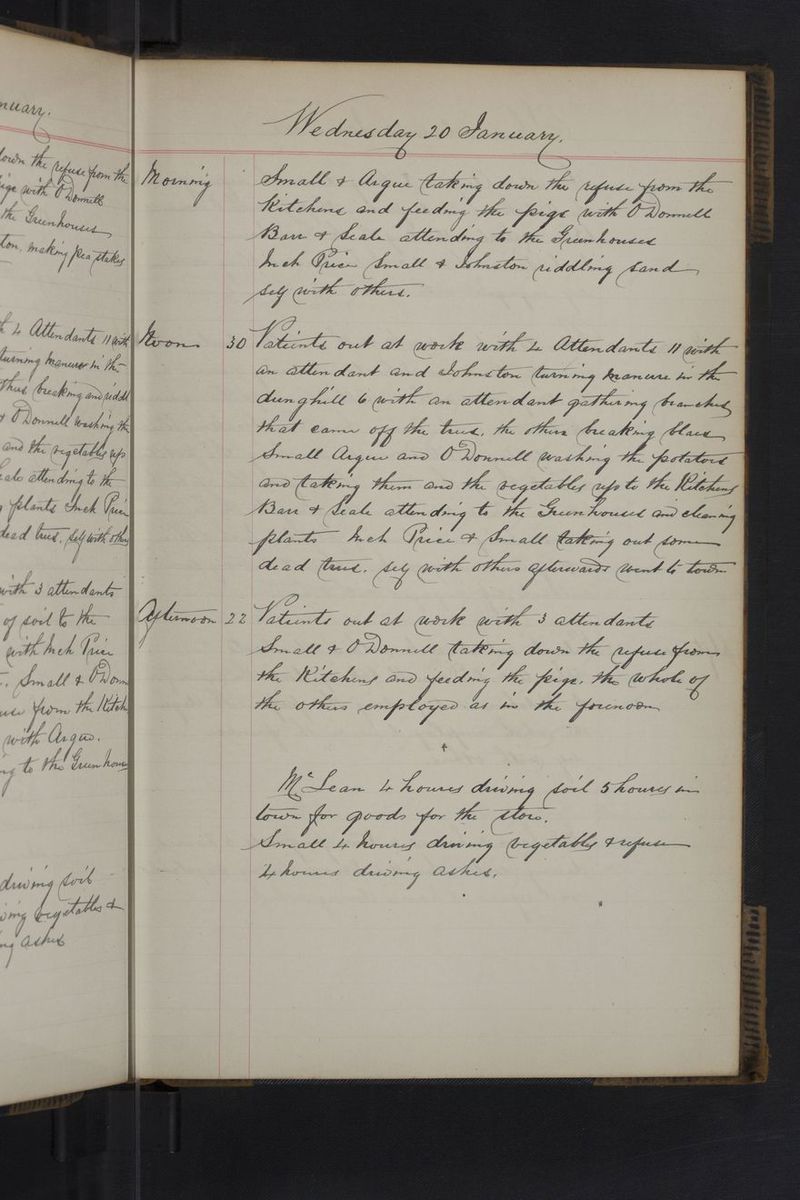 nuary.
down the refuse from the
pigs with O'Donnell
the Greenhouses
making pea stakes
4 Attendants 11 with
turning manure in the
others breaking and riddl
& O'Donnell washing the
and the vegetables up
eale attending to the
plants Inch Price
dead trees. self with others
with 3 attendants
of soil to the
with Inch Price
Small & O'Donn
use from the Kitch
with Argue.
ing to the Greenhouses
driving soil
ving vegetables &
ng ashes
Wednesday 20 January.
Morning Small & Argue taking down the refuse from the
Kitchens and feeding the pigs with O'Donnell
Barr & Seale attending to the Greenhouses
Inch Price Small & Johnston riddling sand
self with others.
Noon 30 Patients out at work with 4 Attendants 11 with
an attendant and Johnston turning manure in the
dunghill 6 with an attendant gathering branches
that came off the trees. the others breaking blaes
Small Argue and O'Donnell washing the potatoes
and taking them and the vegetables up to the Kitchens
Barr & Seale attending to the Greenhouses and cleaning
plants Inch Price & Small taking out some
dead trees. self with others afterwards went to town
Afternoon 22 Patients out at work with 3 attendants
Small & O'Donnell taking down the refuse from
the Kitchens and feeding the pigs. the whole of
the others employed as in the forenoon
McLean 4 houres driving soil 5 houres in
town for goods for the store.
Small 4 houres driving vegetables & refuse
4 houres driving ashes.